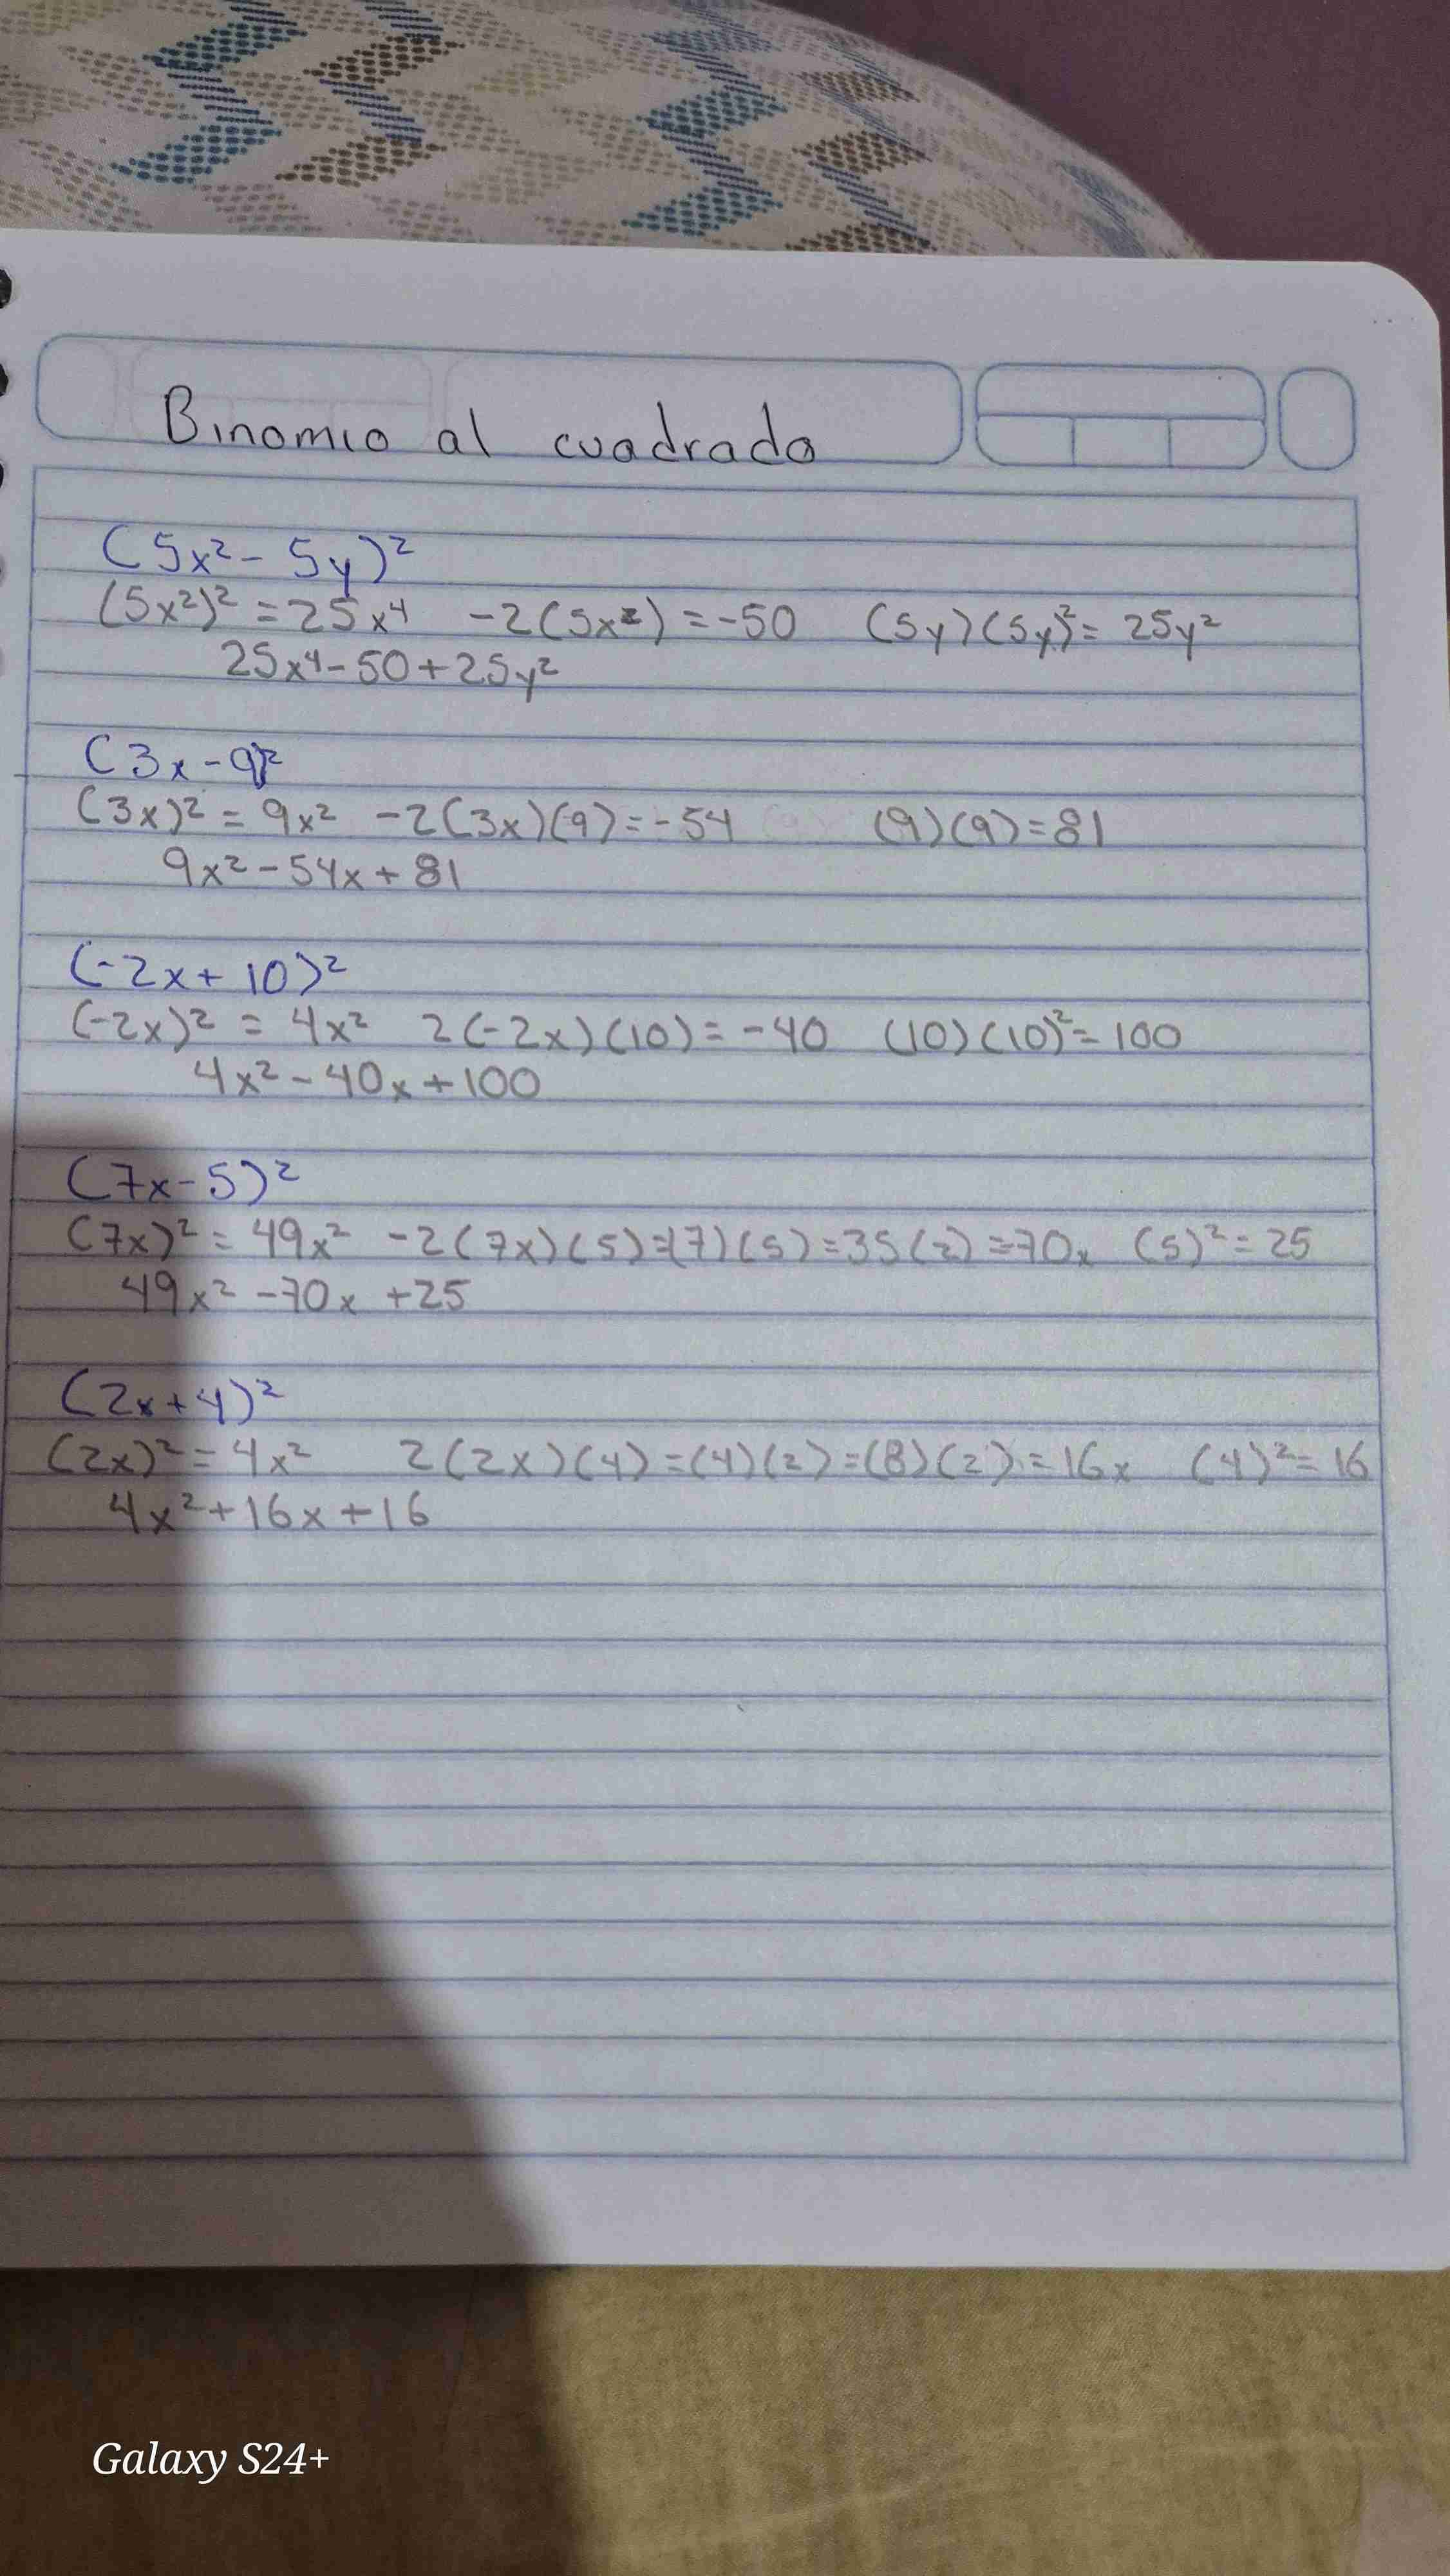 Binomio al cuadrado
(5x² - 5y)²
(5x²)² = 25x⁴ -2(5x²) = -50 (5y)(5y)² = 25y²
25x⁴ - 50 + 25y²
(3x - 9)²
(3x)² = 9x² -2(3x)(9) = -54 (9)(9) = 81
9x² - 54x + 81
(-2x + 10)²
(-2x)² = 4x² 2(-2x)(10) = -40 (10)(10)² = 100
4x² - 40x + 100
(7x - 5)²
(7x)² = 49x² -2(7x)(5) = (7)(5) = 35(2) = -70x (5)² = 25
49x² - 70x + 25
(2x + 4)²
(2x)² = 4x² 2(2x)(4) = (4)(2) = (8)(2) = 16x (4)² = 16
4x² + 16x + 16
Galaxy S24+